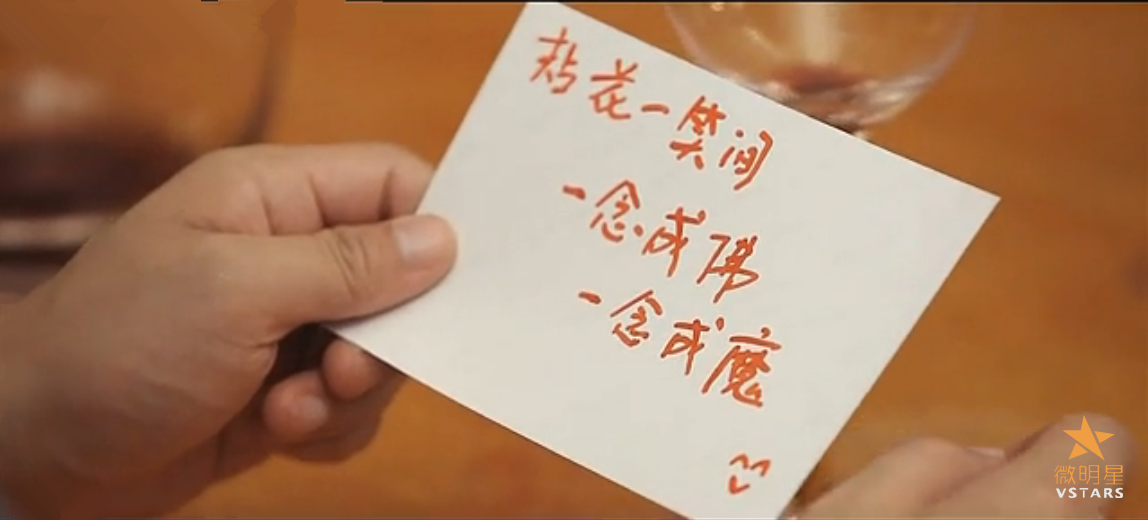 拈花一笑间
一念成佛
一念成魔
微明星
VSTARS